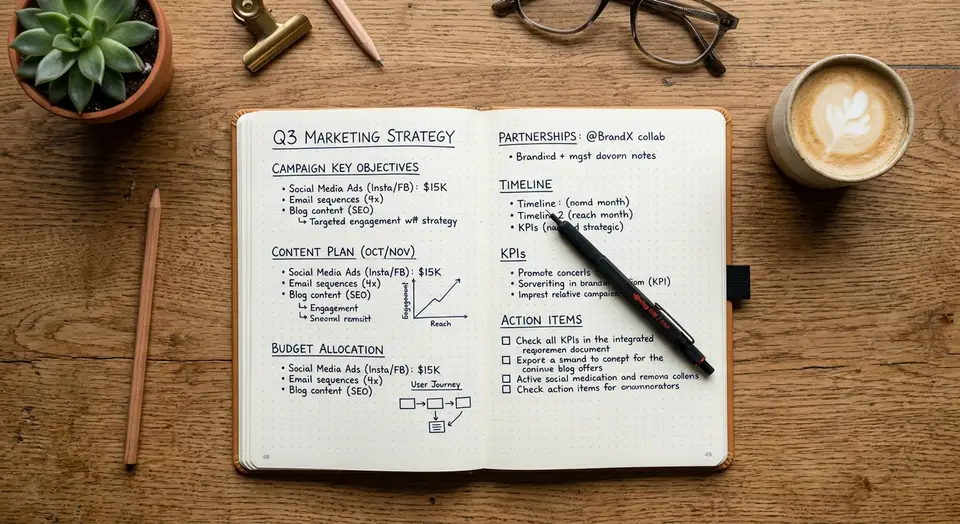 Q3 MARKETING STRATEGY
CAMPAIGN KEY OBJECTIVES
• Social Media Ads (Insta/FB): $15K
• Email sequences (4x)
• Blog content (SEO)
↳ Targeted engagement wff strategy
CONTENT PLAN (OCT/NOV)
• Social Media Ads (Insta/FB): $15K
• Email sequences (4x)
• Blog content (SEO)
↳ Engagement
Engagement
Reach
BUDGET ALLOCATION
• Social Media Ads (Insta/FB): $15K
• Email sequences (4x)
• Blog content (SEO)
User Journey
48
PARTNERSHIPS: @BrandX collab
• Brandind + mgst dovorn notes
TIMELINE
• Timeline: (nomd month)
• Timeline 2 (reach month)
• KPIs strategic)
KPIs
• Promote concerls
• Sorveriting in (KPI)
• Imprest relative
ACTION ITEMS
☐ Check all KPIs in the integrated
reqoremen document
☐ Expore a smand to conept for the
coninue blog offers
☐ Active social medication and remova collens
☐ Check action items for
49